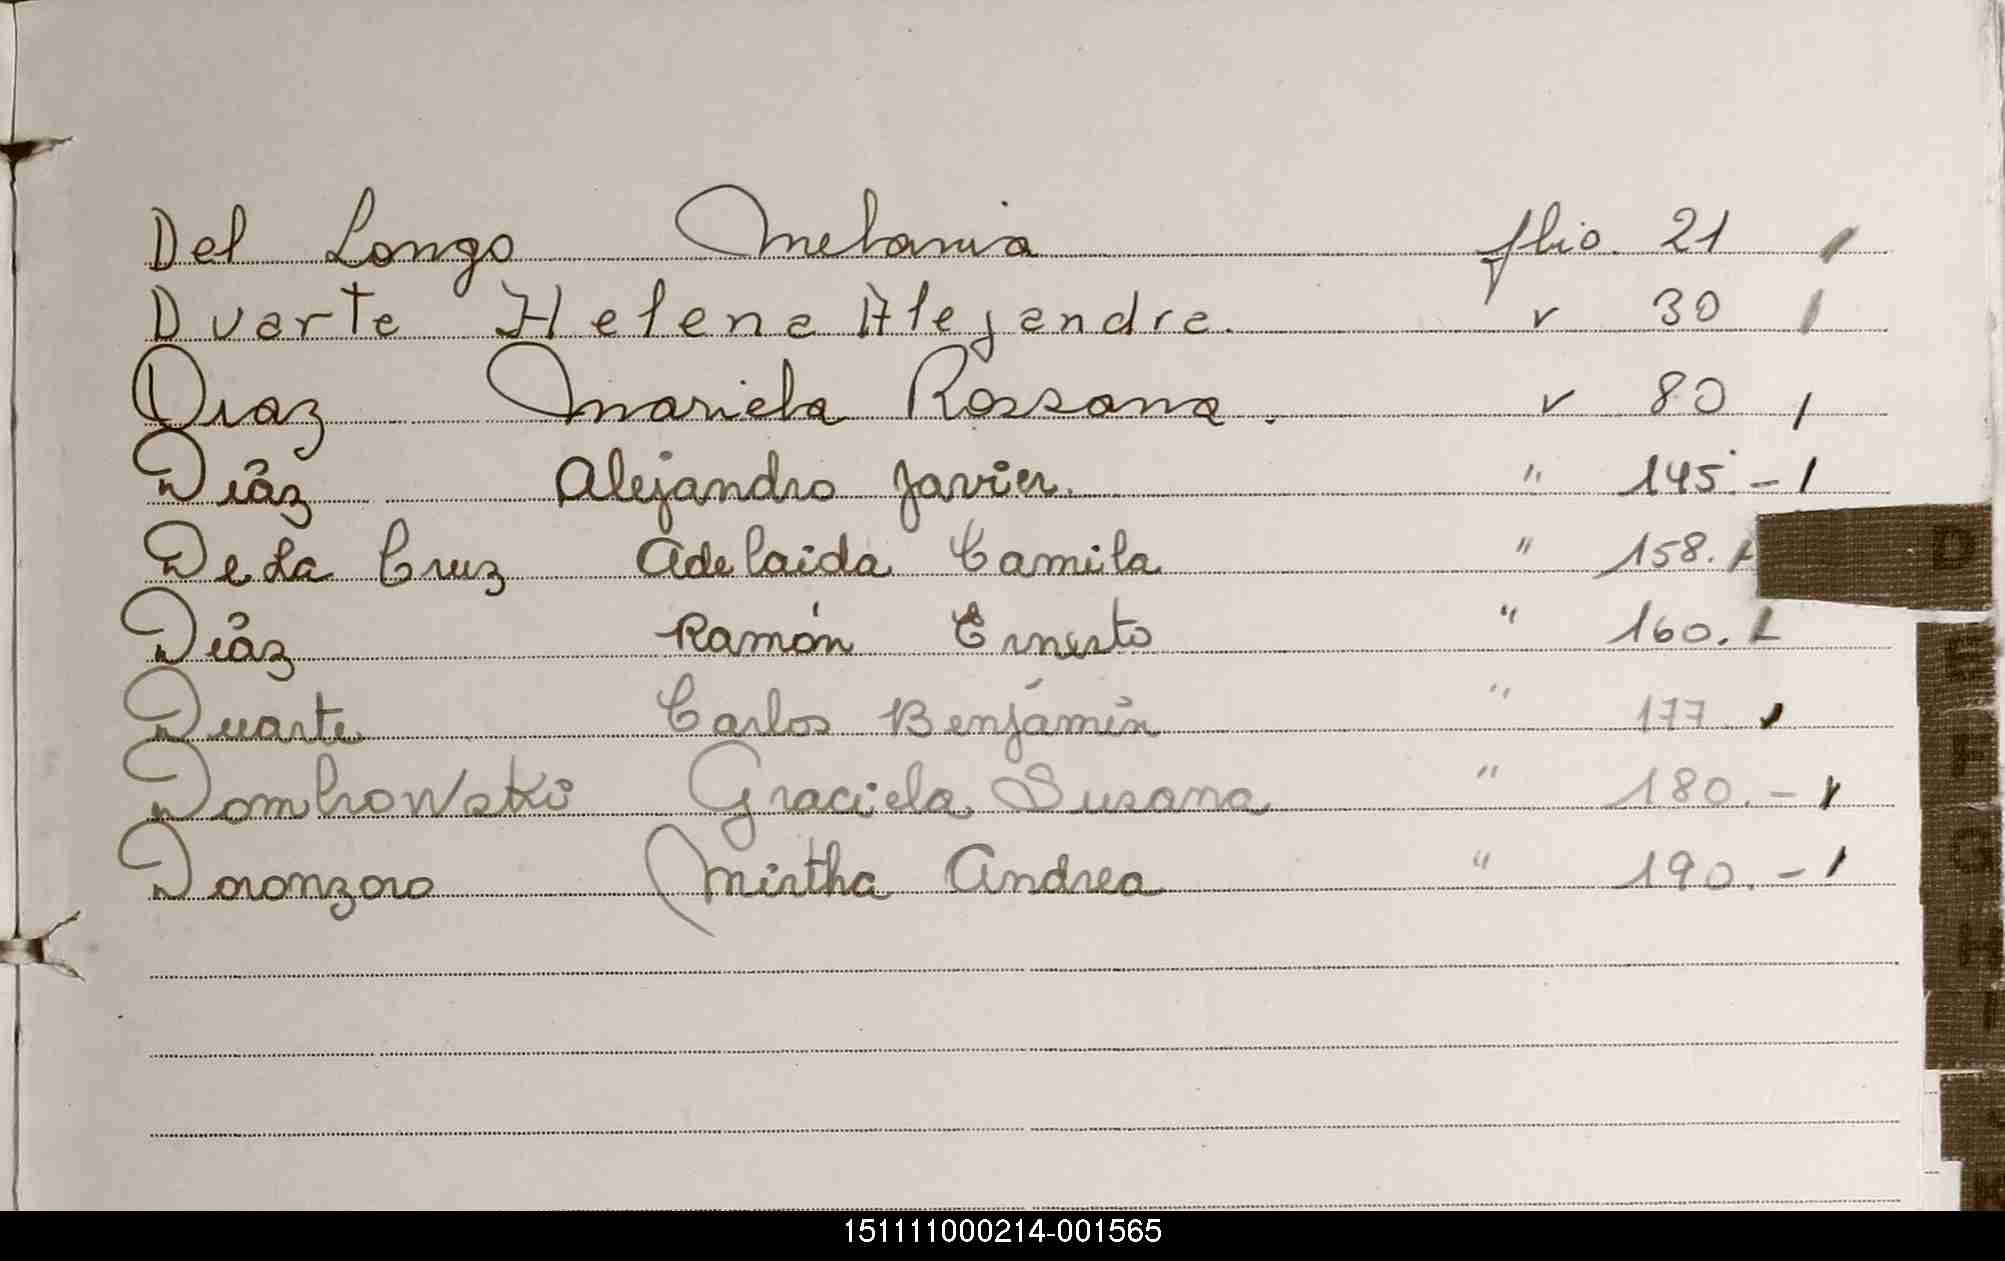 Del Longo Melania flio. 21
Duarte Helena Alejandra. v 30
Diaz Mariela Rossana. v 80
Diáz Alejandro Javier. " 145.-
De La Cruz Adelaida Camila " 158.
Diáz Ramón Ernesto " 160.
Duarte Carlos Benjamín " 177
Dombrowski Graciela Susana " 180.-
Doronzoro Mirtha Andrea " 190.-
D
E
F
G
H
I
J
151111000214-001565